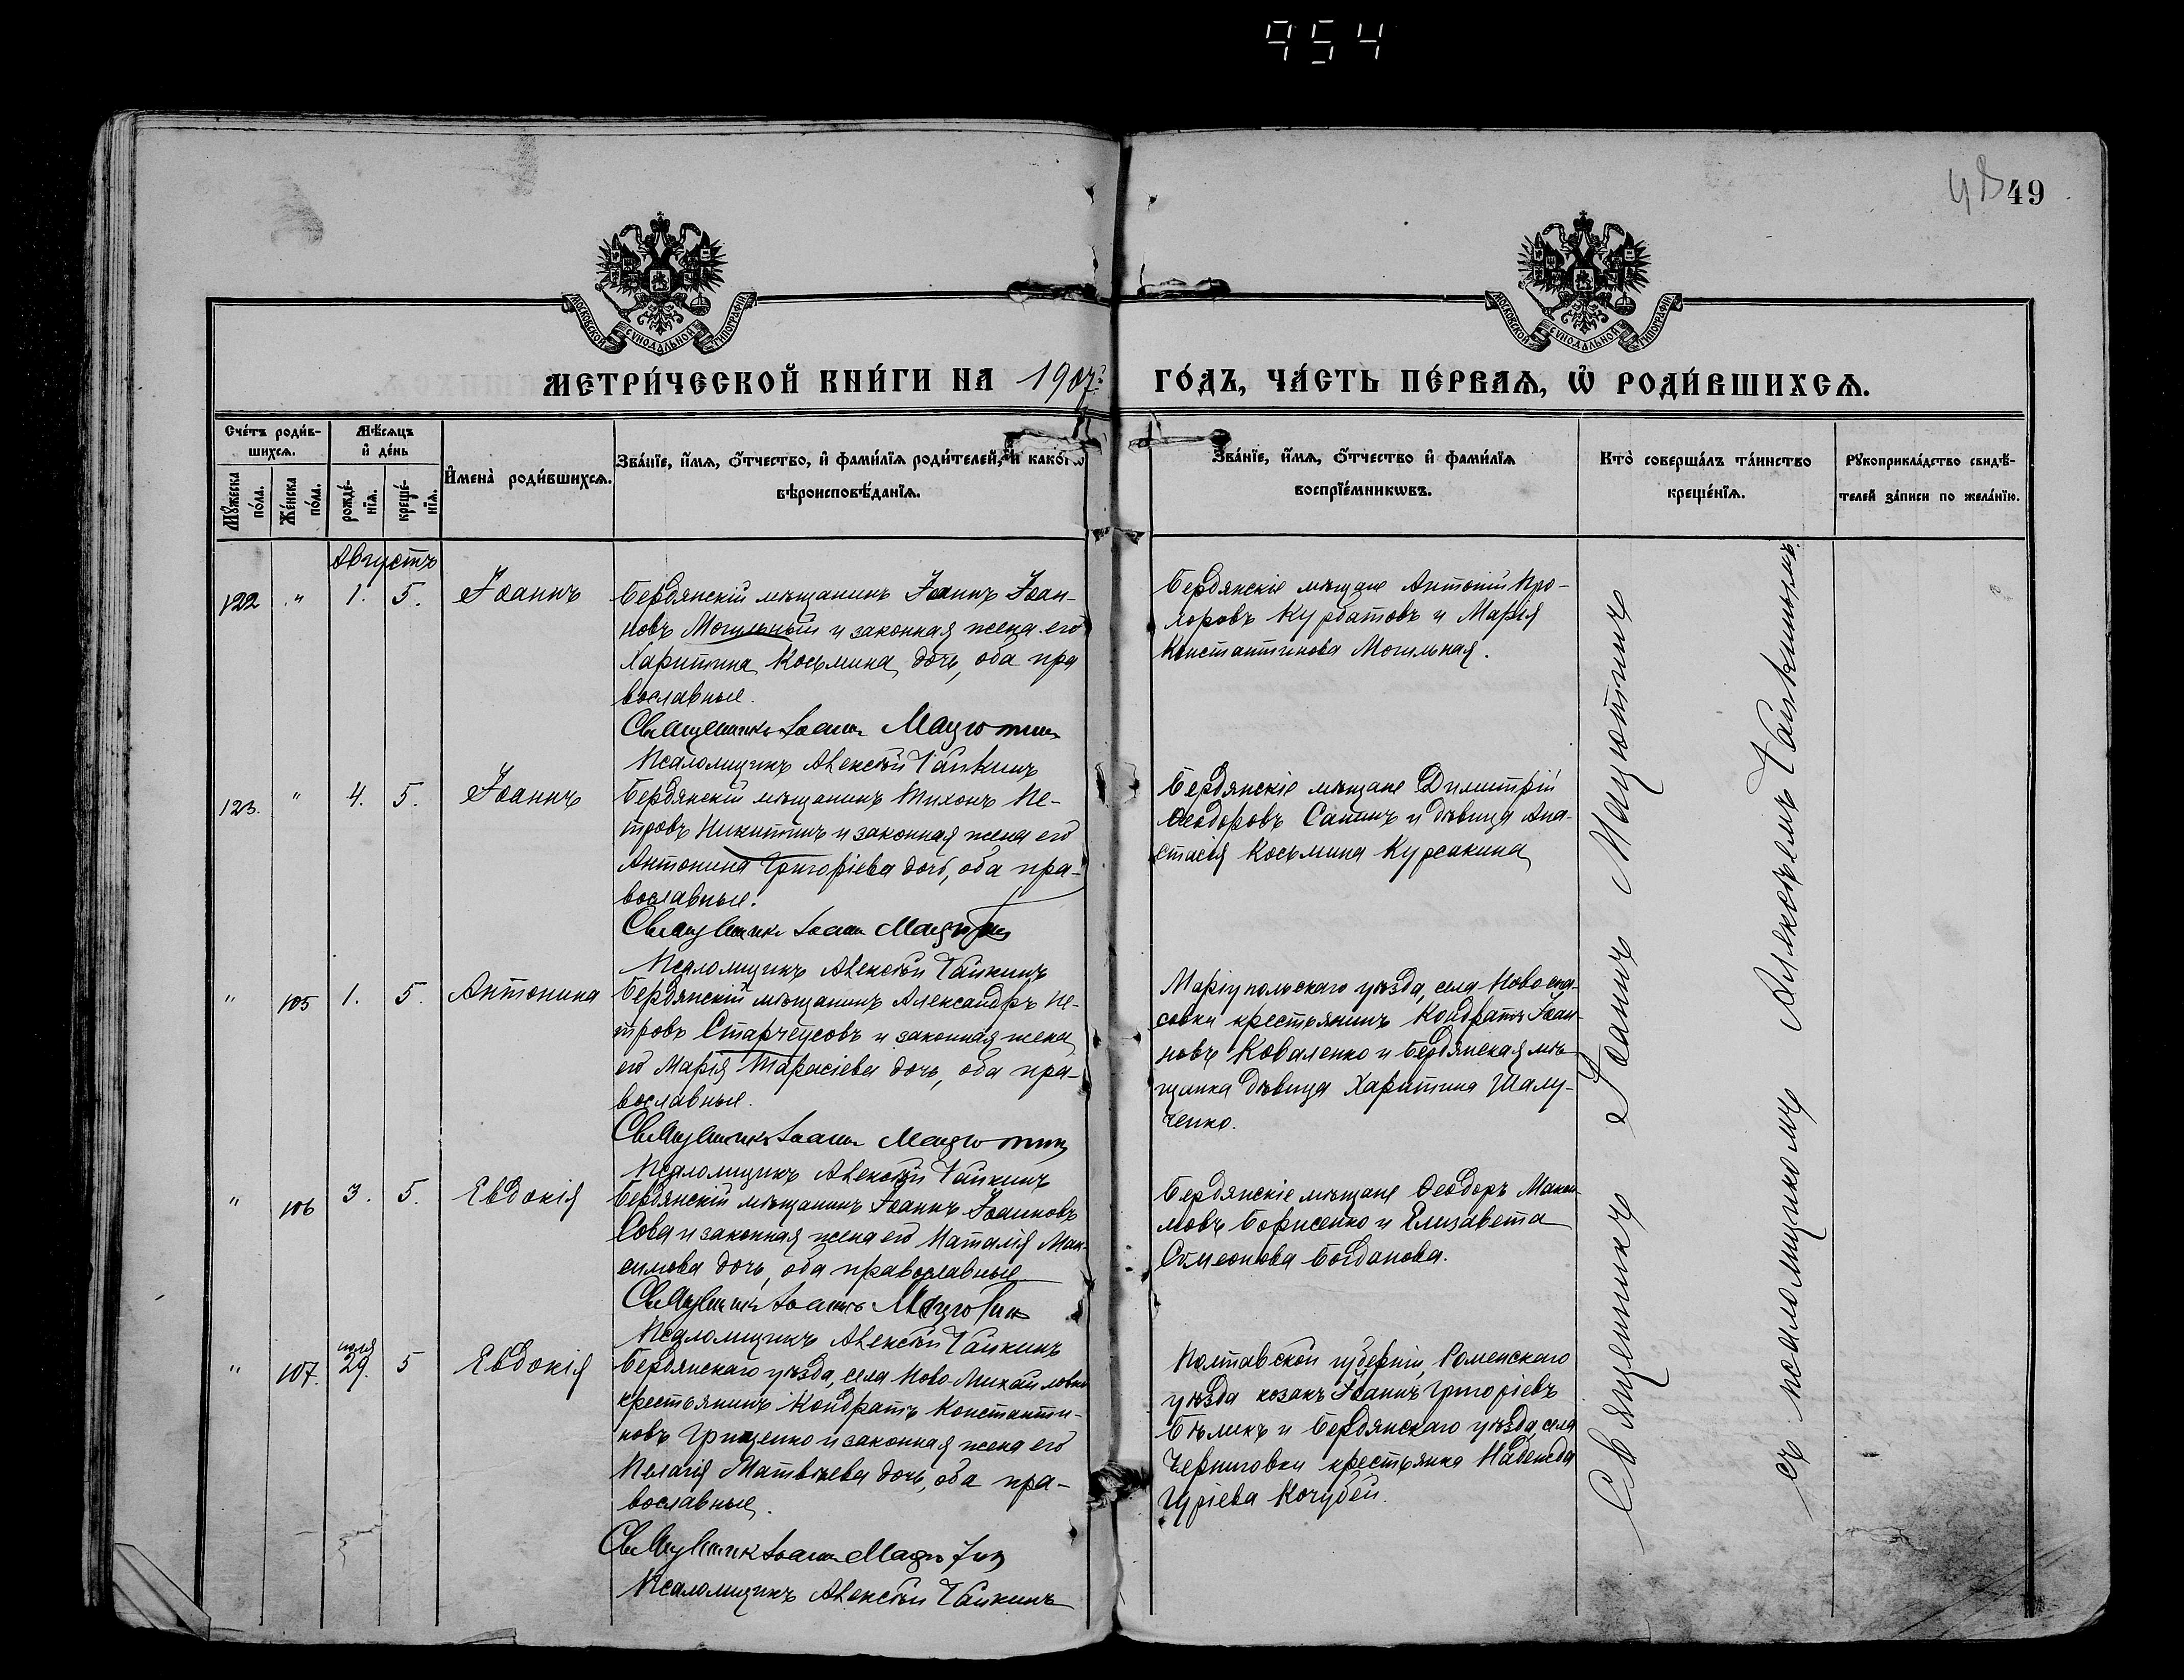 954
49
МОСКОВСКОЙ СУНОДАЛЬНОЙ ТИПОГРАФІИ
МОСКОВСКОЙ СУНОДАЛЬНОЙ ТИПОГРАФІИ
МЕТРИ́ЧЕСКОЙ КНИ́ГИ НА 1907 ГО́ДЪ, ЧА́СТЬ ПЕ́РВАѦ, Ѡ҆ РОДИ́ВШИХСѦ.
Сче́тъ роди́в-
шихсѧ.
Мѣ́сѧцъ
и҆ де́нь
Мꙋ́жеска
по́ла.
Же́нска
по́ла.
рожде́-
нїѧ.
креще́-
нїѧ.
И҆мена̀ роди́вшихсѧ.
Зва́нїе, и҆́мѧ, ѻ҆́тчество, и҆ фами́лїѧ роди́телей, и҆ како́гѡ
вѣроисповѣ́данїѧ.
Зва́нїе, и҆́мѧ, ѻ҆́тчество и҆ фами́лїѧ
воспрїе́мникѡвъ.
Кто̀ соверша́лъ та́инство
креще́нїѧ.
Рꙋкоприкла́дство свидѣ́-
телей за́писи по жела́нїю.
Августъ
122 " 1. 5. Іоаннъ
Бердянскій мѣщанинъ Іоаннъ Іоан-
новъ Могильный и законная жена его
Харитина Косьмина дочь, оба пра
вославные.
Священникъ Іоаннъ Мацютинъ
Псаломщикъ Алексѣй Чайкинъ
Бердянскіе мѣщане Антоній Про-
хоровъ Курбатовъ и Марія
Константинова Могильная.
123. " 4. 5. Іоаннъ
Бердянскій мѣщанинъ Тихонъ Пе-
тровъ Никитинъ и законная жена его
Антонина Григоріева дочь, оба пра-
вославные.
Священникъ Іоаннъ Мацютинъ
Псаломщикъ Алексѣй Чайкинъ
Бердянскіе мѣщане Димитрій
Ѳеодоровъ Сапинъ и дѣвица Ана-
стасія Косьмина Курсакина
" 105 1. 5. Антонина
Бердянскій мѣщанинъ Александръ Пе-
тровъ Старчеусовъ и законная жена
его Марія Тарасіева дочь, оба пра-
вославные.
Священникъ Іоаннъ Мацютинъ
Псаломщикъ Алексѣй Чайкинъ
Маріупольскаго уѣзда, села Новоспа-
совки крестьянинъ Кондратъ Іоан-
новъ Коваленко и Бердянская мѣ-
щанка дѣвица Харитина Шалу-
ченко.
" 106 3. 5. Евдокія
Бердянскій мѣщанинъ Іоаннъ Іоанновъ
Сова и законная жена его Наталія Мак-
симова дочь, оба православные
Священникъ Іоаннъ Мацютинъ
Псаломщикъ Алексѣй Чайкинъ
Бердянскіе мѣщане Ѳеодоръ
мовъ Борисенко и Елизавета
Симеонова Богданова.
" 107. іюля 29. 5 Евдокія
Бердянскаго уѣзда, села Ново Михайловки
крестьянинъ Кондратъ Константи-
новъ Грищенко и законная жена его
Пелагія Матвѣева дочь, оба пра-
вославные.
Священникъ Іоаннъ Мацютинъ
Псаломщикъ Алексѣй Чайкинъ
Полтавской губерніи, Роменскаго
уѣзда козакъ Іоаннъ Григоріевъ
Бѣликъ и Бердянскаго уѣзда, села
Черниговки крестьянка Надежда
Гуріева Кочубей.
Священникъ Іоаннъ Мацютинъ
съ псаломщикомъ Алексѣемъ Чайкинымъ.